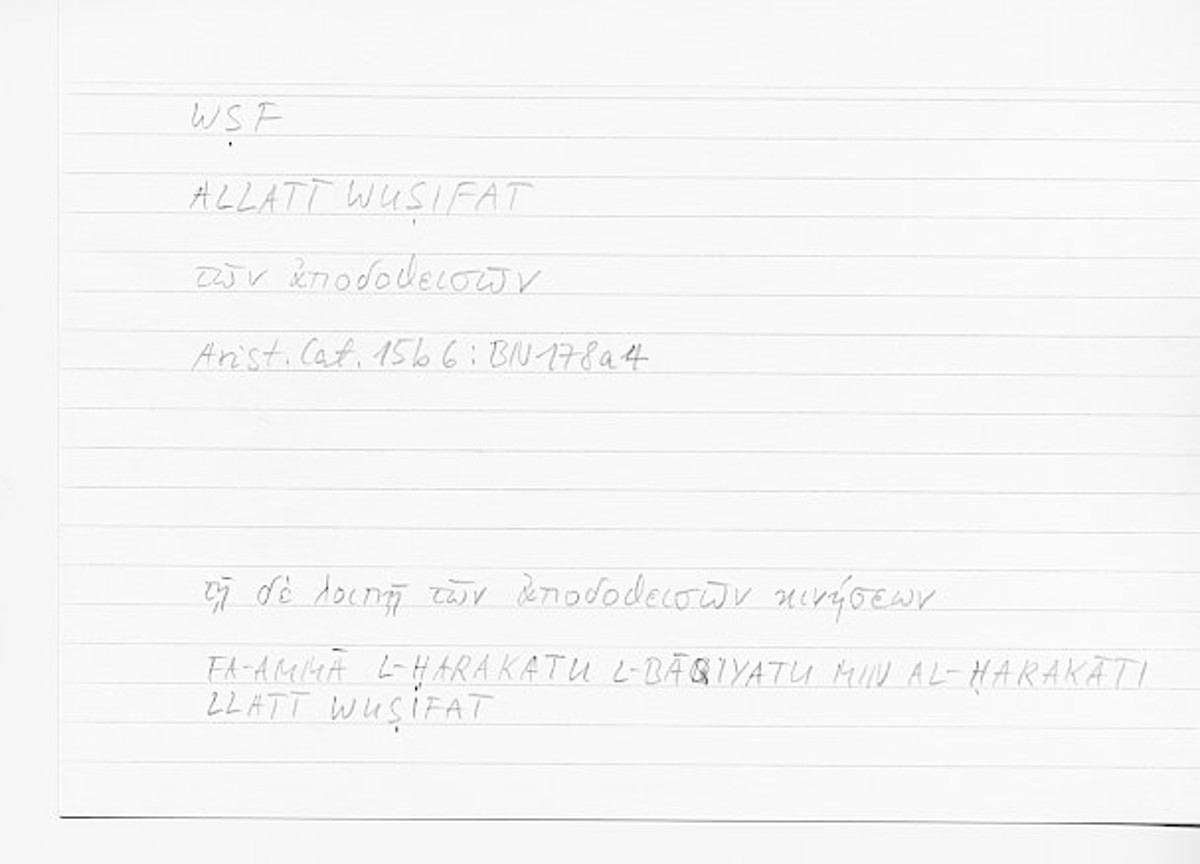 WṢF
ALLATĪ WUṢIFAT
τῶν ἀποδοθεισῶν
Arist. Cat. 15b6 : BN 178a4
τῇ δὲ λοιπῇ τῶν ἀποδοθεισῶν κινήσεων
FA-AMMĀ L-ḤARAKATU L-BĀQIYATU MIN AL-ḤARAKĀTI
LLATĪ WUṢIFAT